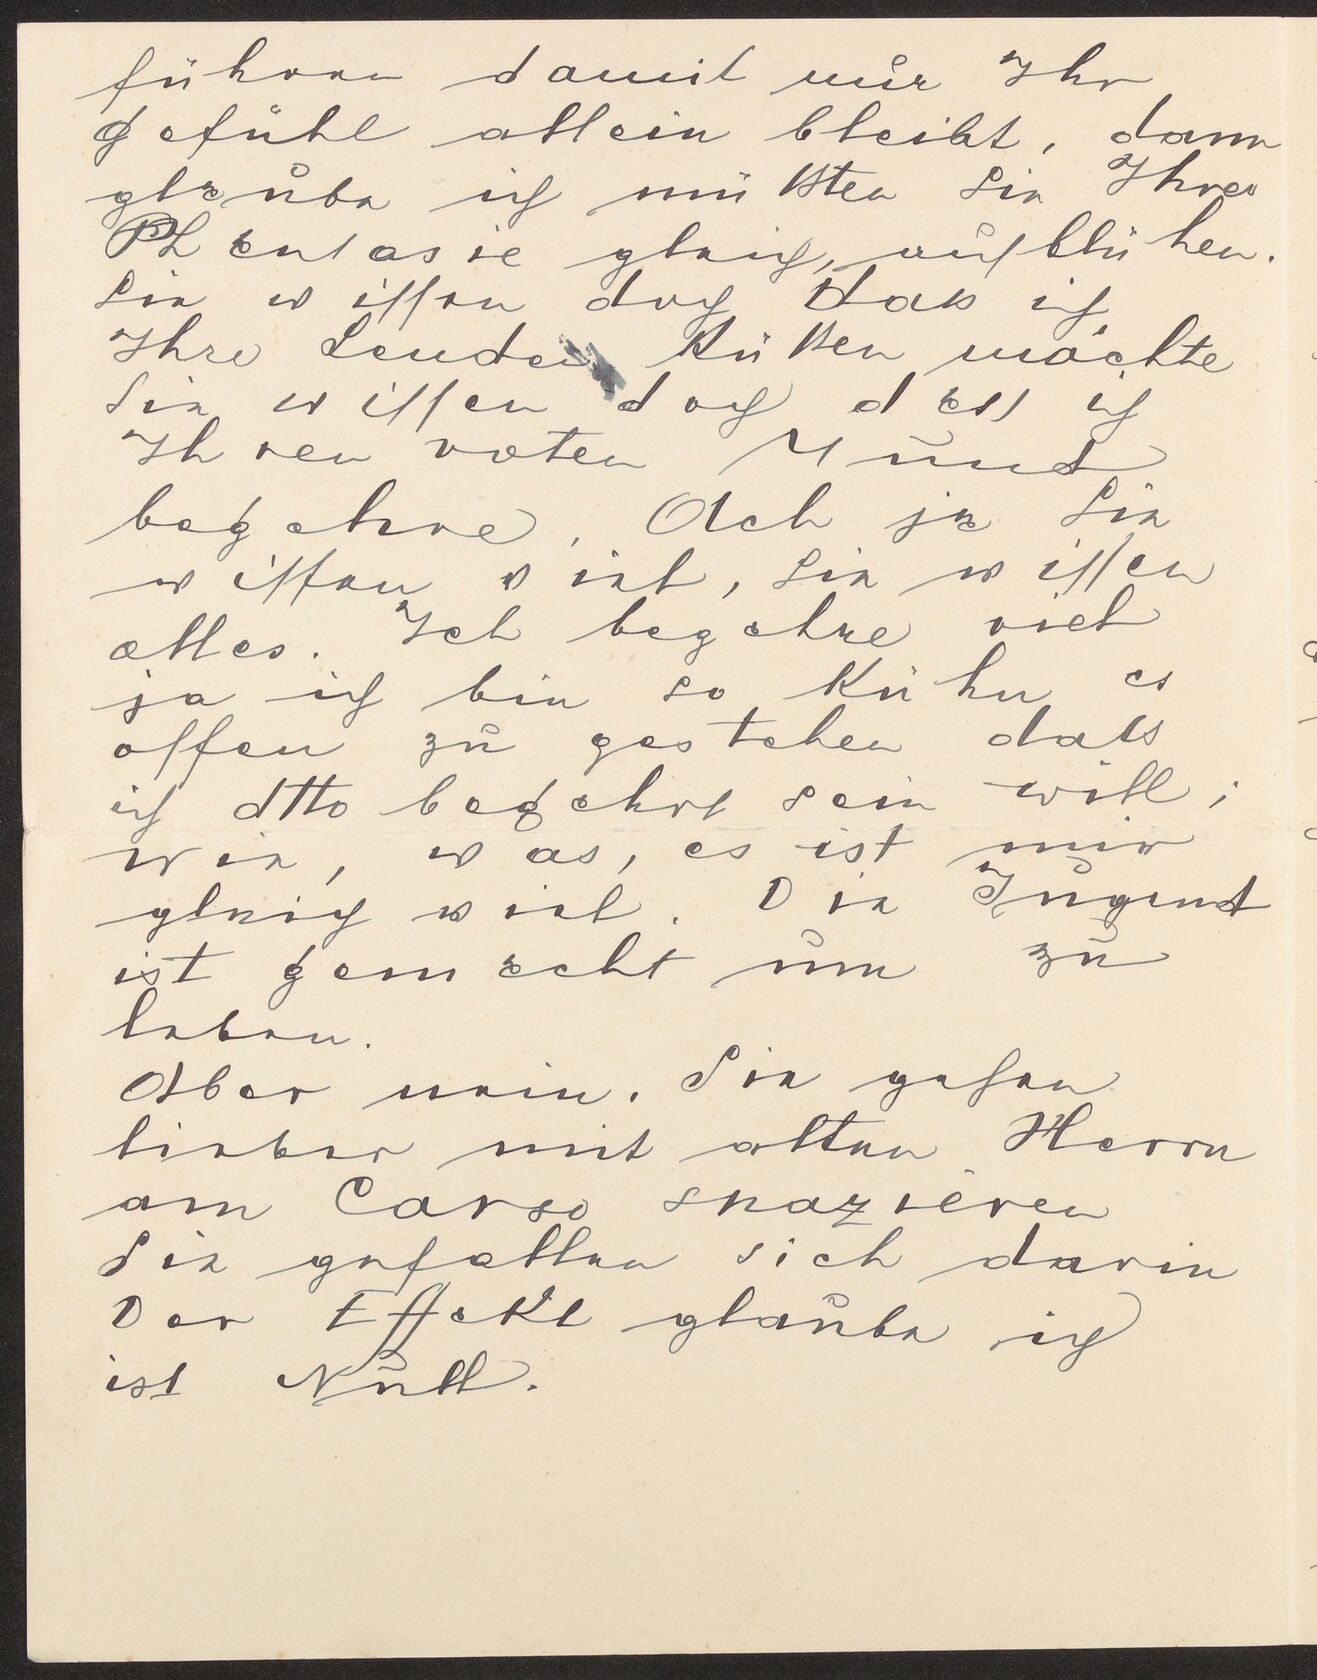 führen damit nur Ihr
Gefühl allein bleibt, dann
glaube ich müßten Sie Ihrer
Phantasie gleich, aufblühen.
Sie wissen doch daß ich
Ihre Lenden küßen möchte
Sie wissen doch dass ich
Ihren roten Mund
begehre. Ach ja Sie
wissen viel, Sie wissen
alles. Ich begehre viel
ja ich bin so kühn es
offen zu gestehen daß
ich dtto begehrt sein will;
wie, was, es ist mir
gleich viel. Die Jugend
ist gemacht um zu
leben.
Aber nein. Sie gehen
lieber mit alten Herrn
am Corso spazieren
Sie gefallen sich darin
Der Effekt glaube ich
ist Null.